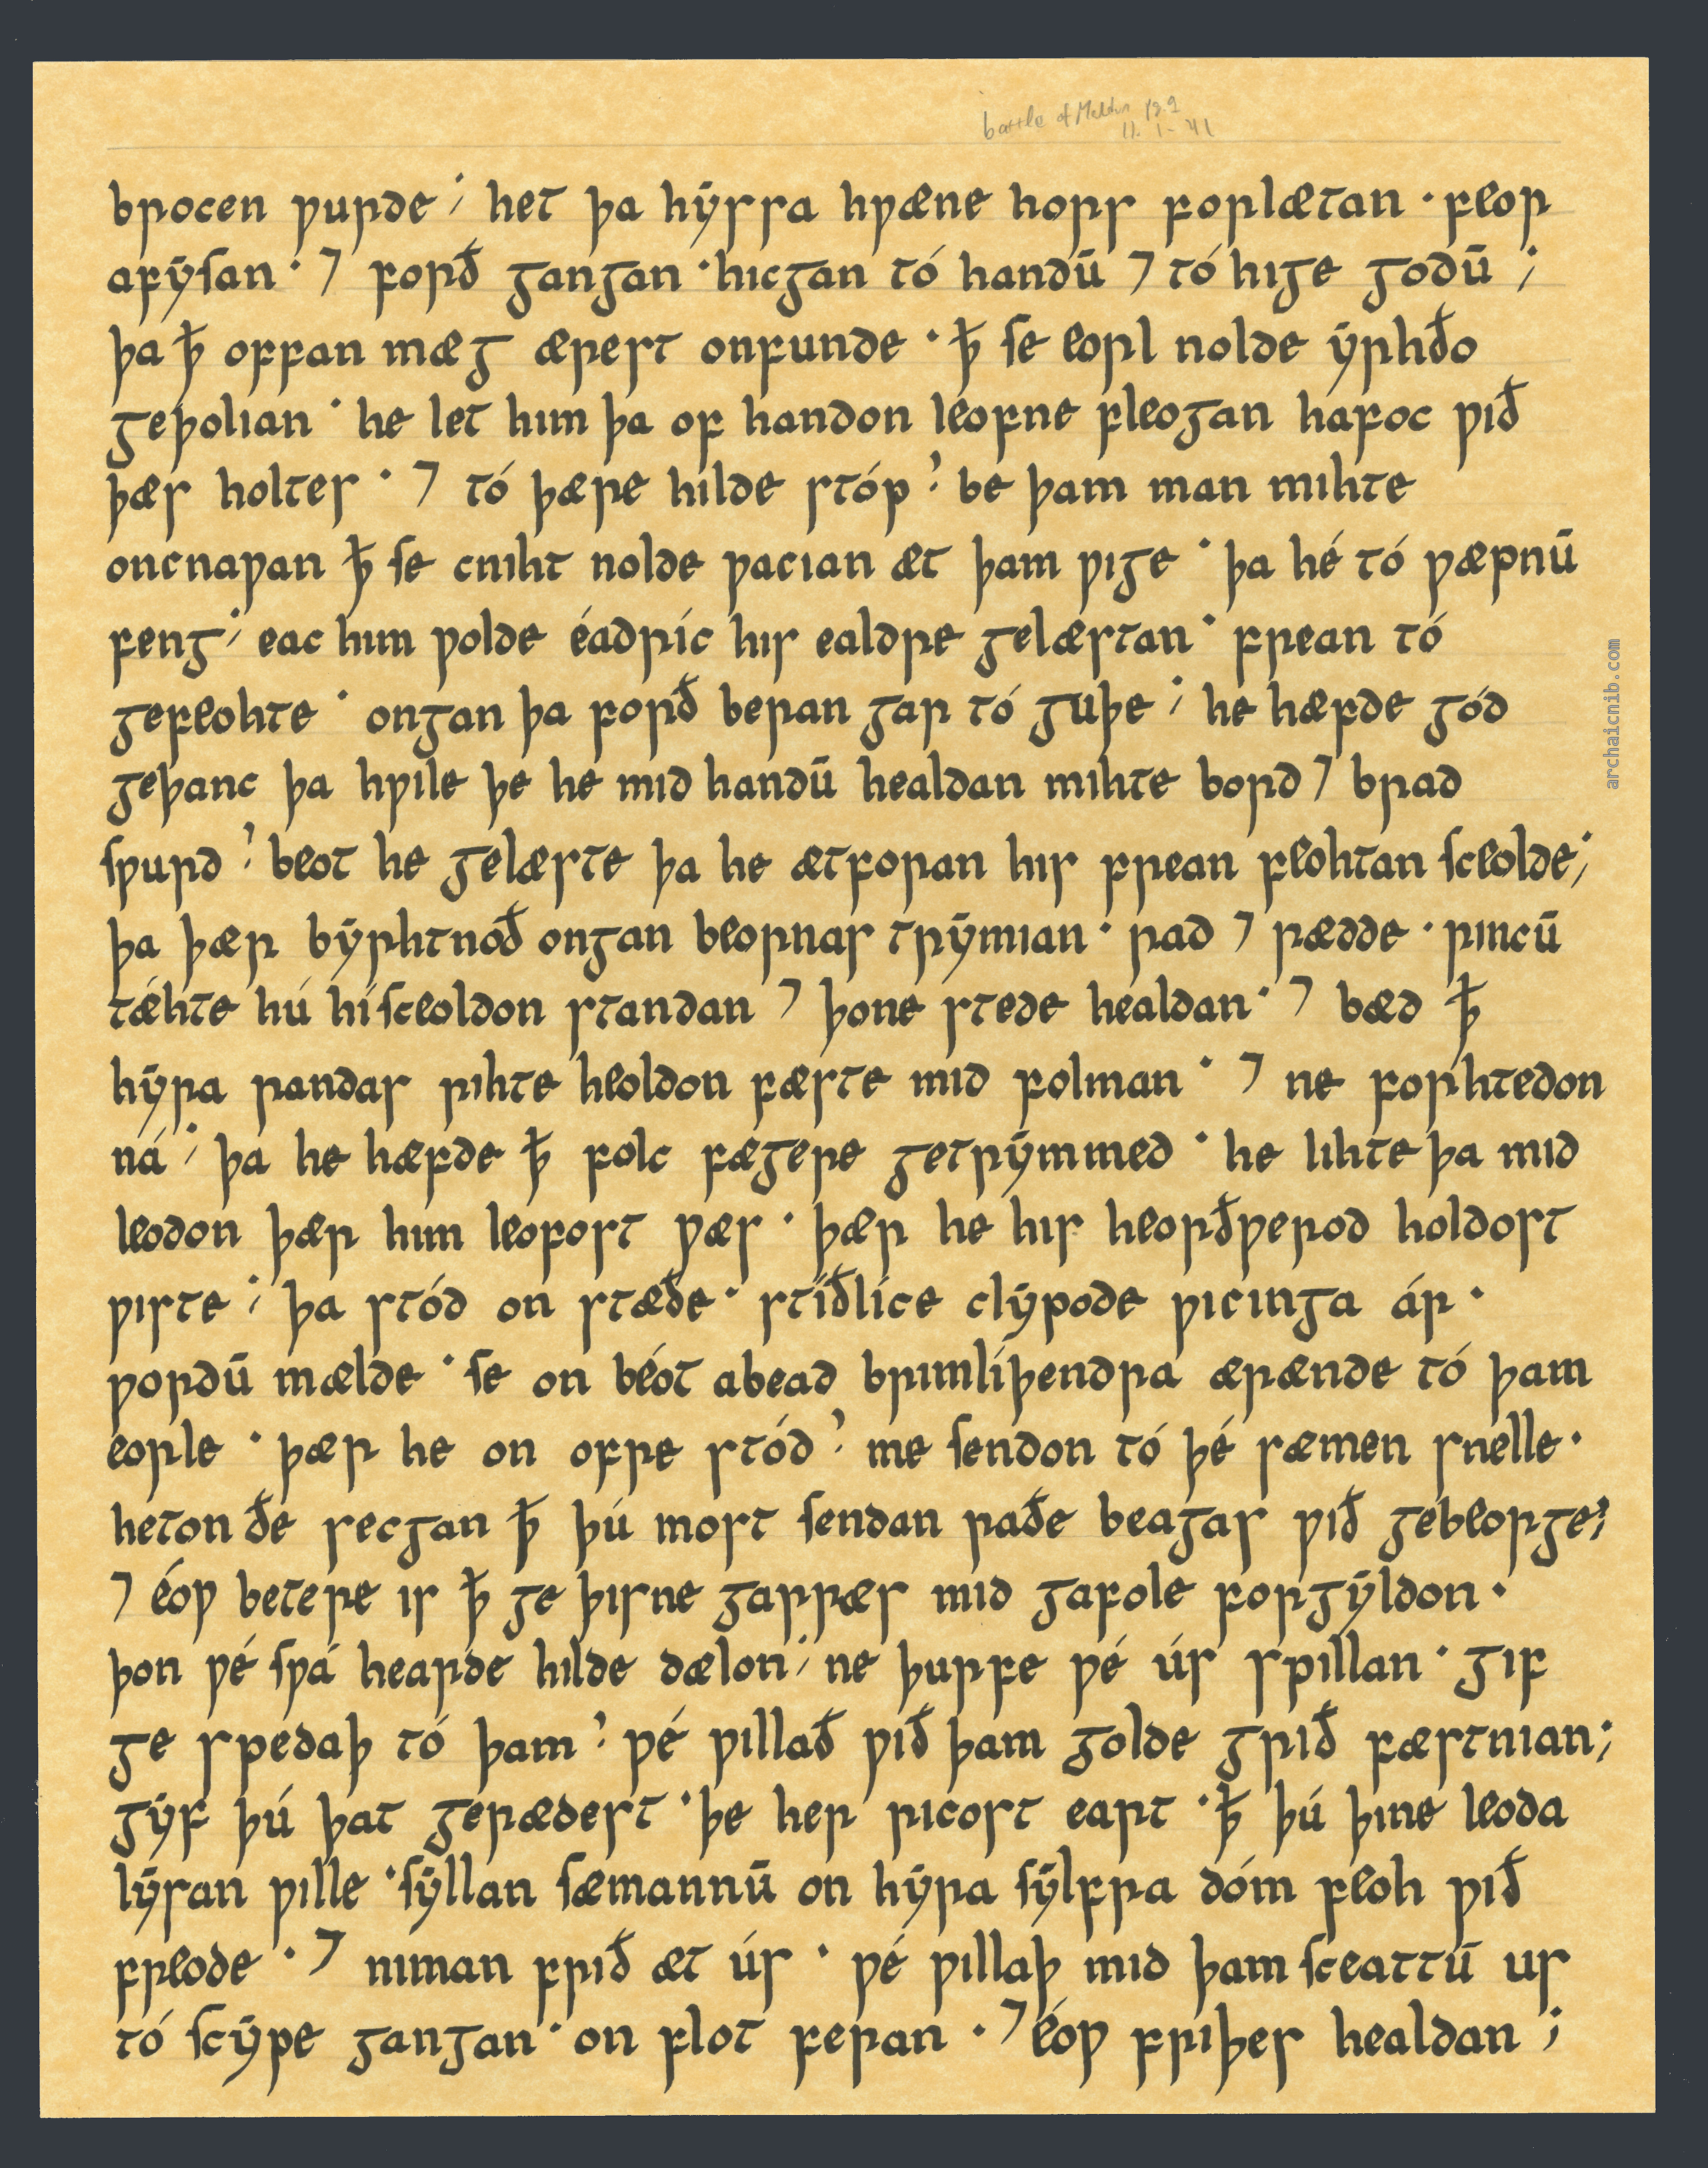 battle of Maldon
brocen ƿurde ⁊ het þa hẏssa hƿæne hors forlætan · feor
afẏsan · ⁊ forð gangan · hicgan tó handū ⁊ tó hige godū ;
þa ꝥ offan mæg ærest onfunde · ꝥ se eorl nolde ẏrhðo
geþolian · he let him þa of handon leofne fleogan hafoc ƿið
þæs holtes · ⁊ tó þære hilde stóp ; be þam man mihte
oncnaƿan ꝥ se cniht nolde ƿacian æt þam ƿige · þa hé tó ƿæpnū
feng ; eac him ƿolde éadríc his ealdre gelæstan · frean tó
gefeohte · ongan þa forð beran gar tó guþe ; he hæfde gód
geþanc þa hƿile þe he mid handū healdan mihte bord ⁊ brad
sƿurd ; beot he gelæste þa he ætforan his frean feohtan sceolde ;
þa þær bẏrhtnóð ongan beornas trẏmian · rad ⁊ rædde · rincū
tǽhte hú hí sceoldon standan ⁊ þone stede healdan · ⁊ bæd ꝥ
hẏra randas rihte heoldon fæste mid folman · ⁊ ne forhtedon
ná ; þa he hæfde ꝥ folc fægere getrẏmmed · he lihte þa mid
leodon þær him leofost ƿæs · þær he his heorðƿerod holdost
ƿiste ; þa stód on stæðe · stíðlíce clẏpode ƿicinga ár ·
ƿordū mælde · se on béot abead brimlíþendra ærænde tó þam
eorle · þær he on ofre stód ; me sendon tó þé sæmen snelle ·
heton ðe secgan ꝥ þú most sendan raðe beagas ƿið gebeorge ;
⁊ éoƿ betere is ꝥ ge þisne garræs mid gafole forgẏldon ·
þon ƿé sƿá hearde hilde dælon ; ne þurfe ƿé ús spillan · gif
ge spedaþ tó þam ; ƿé ƿillað ƿið þam golde grið fæstnian ;
gẏf þú þat gerædest · þe her ricost eart · ꝥ þú þine leoda
lẏsan ƿille · sẏllan sæmannū on hẏra sẏlfra dóm feoh ƿið
freode · ⁊ niman frið æt ús · ƿé ƿillaþ mid þam sceattū us
tó scẏpe gangan · on flot feran · ⁊ éoƿ friþes healdan ;
archaicnib.com